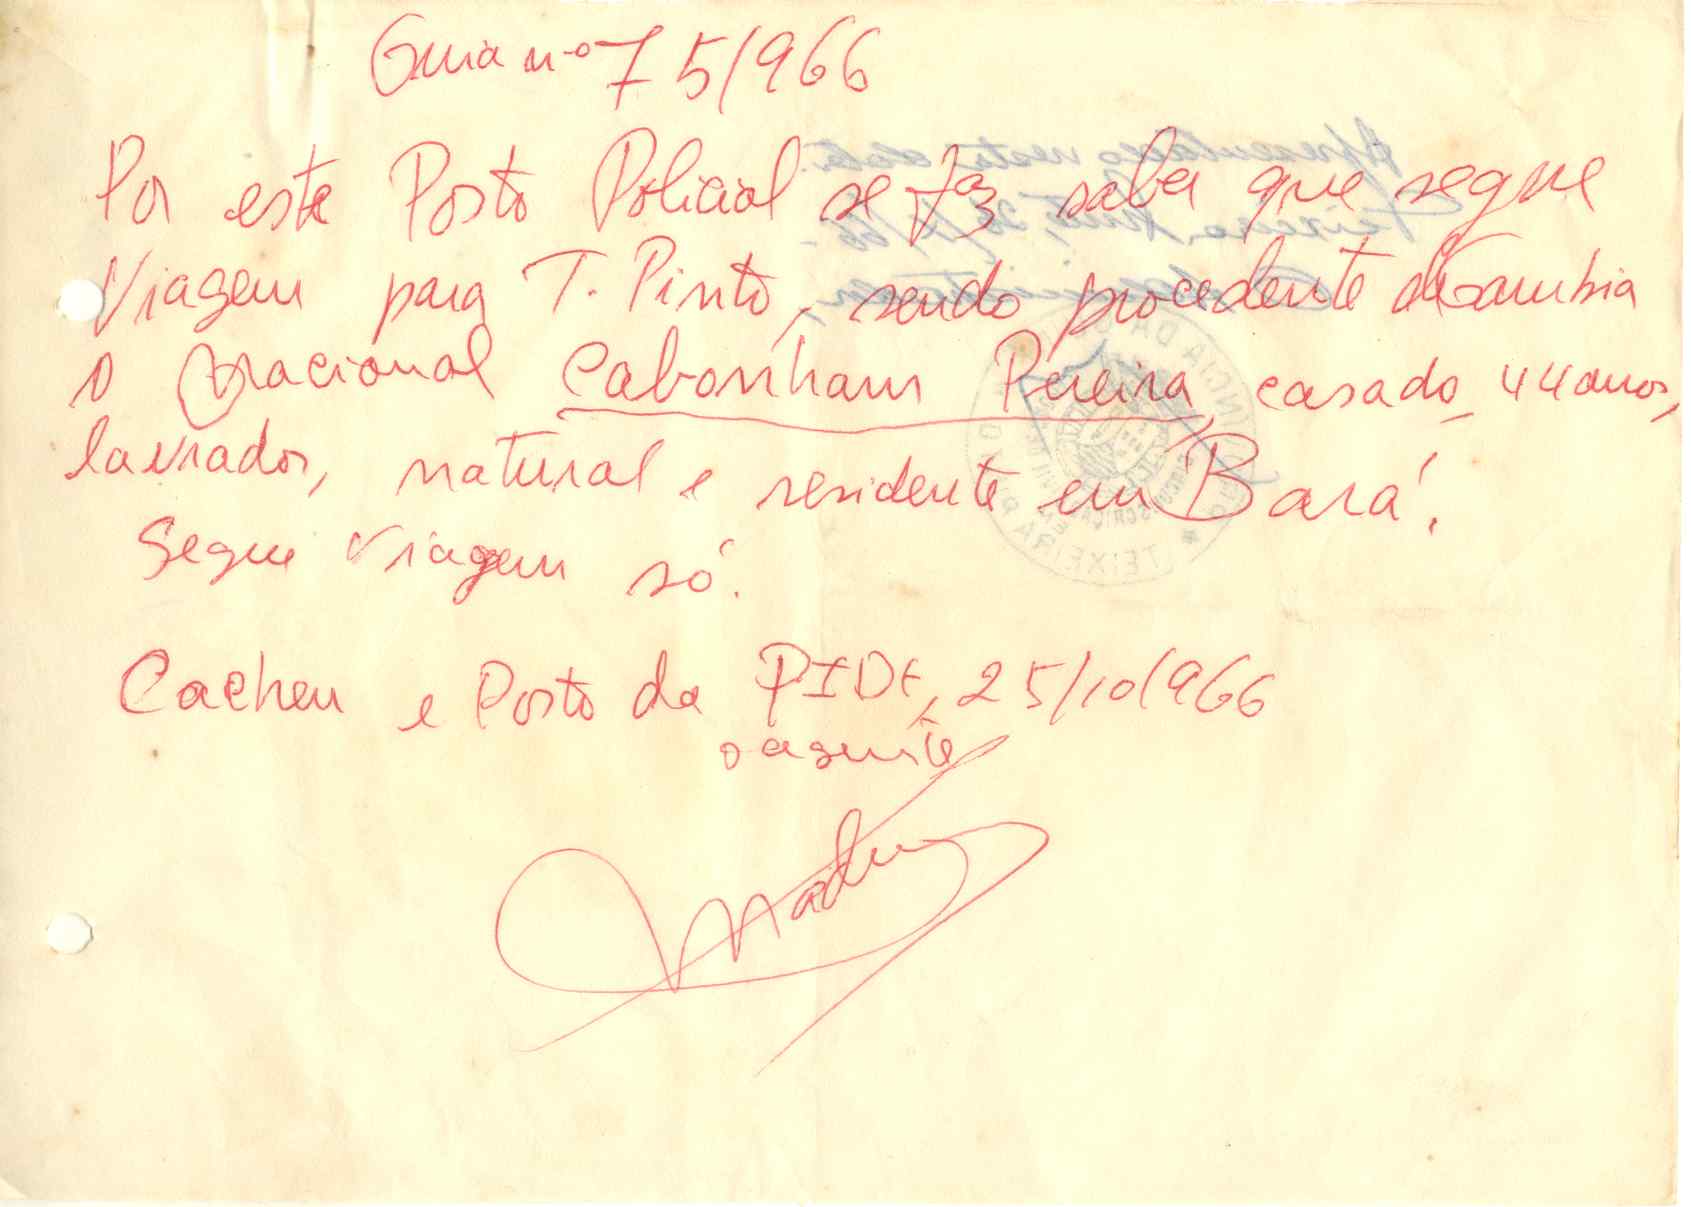 Guia nº 75/966
Por este Posto Policial se faz saber que segue
Viagem para T. Pinto, sendo procedente de Gambia
o nacional Cabonham Pereira, casado, 44 anos,
lavrador, natural e residente em Bará.
Segue viagem só.
Cacheu e Posto da PIDE, 25/10/966
o agente
Apresentado nesta data.
Teixeira Pinto, 26/10/66
O Administrador,
PROVÍNCIA DA GUINÉ
TEIXEIRA PINTO